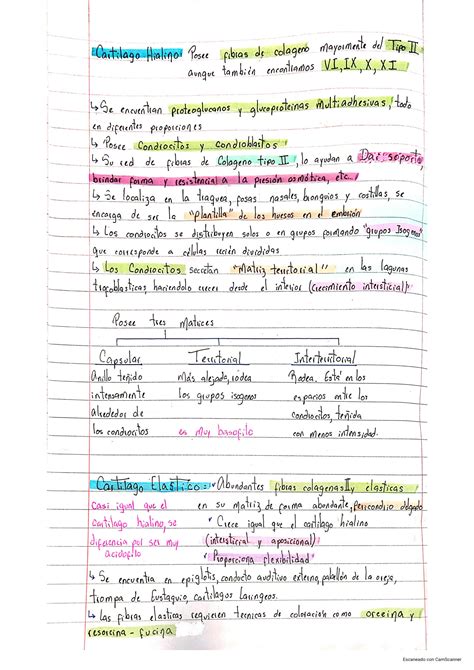 Cartilago Hialino Posee fibras de colageno mayormente del Tipo II
aunque también encontramos VI, IX, X, XI
↳ Se encuentran proteoglucanos y glucoproteinas multiadhesivas, todo
en diferentes proporciones
↳ Posee Condrocitos y condroblastos
↳ Su red de fibras de Colageno tipo II, lo ayudan a Dar soporte,
brindar forma y resistencia a la presión osmótica, etc..
↳ Se localiza en la traquea, fosas nasales, bronquios y costillas, se
encarga de ser la "plantilla" de los huesos en el embrión
↳ Los condrocitos se distribuyen solos o en grupos formando "grupos Isogenos"
que corresponde a células recién divididas
↳ Los Condrocitos secretan "Matriz territorial" en las lagunas
haciendolo crecer desde el interior (crecimiento intersticial)
Posee tres Matrices
Capsular Territorial Interterritorial
Anillo teñido Más alejada, rodea Rodea. Está en los
intensamente los grupos isogenos espacios entre los
alrededor de condrocitos, teñida
los condrocitos es muy basofilo con menos intensidad.
Cartilago Elastico: Abundantes fibras colagenas II y elasticas
Casi igual que el en su matriz de forma abundante, pericondrio delgado
cartilago hialino, se Crece igual que el cartilago hialino
diferencia por ser muy (intersticial y aposicional)
acidofilo "Proporciona flexibilidad"
↳ Se encuentra en epiglotis, conducto auditivo externo, pabellón de la oreja,
trompa de Eustaquio, cartilagos Laringeos.
↳ Las fibras elasticas requieren tecnicas de coloración como orceina y
resorcina - fucina
Escaneado con CamScanner